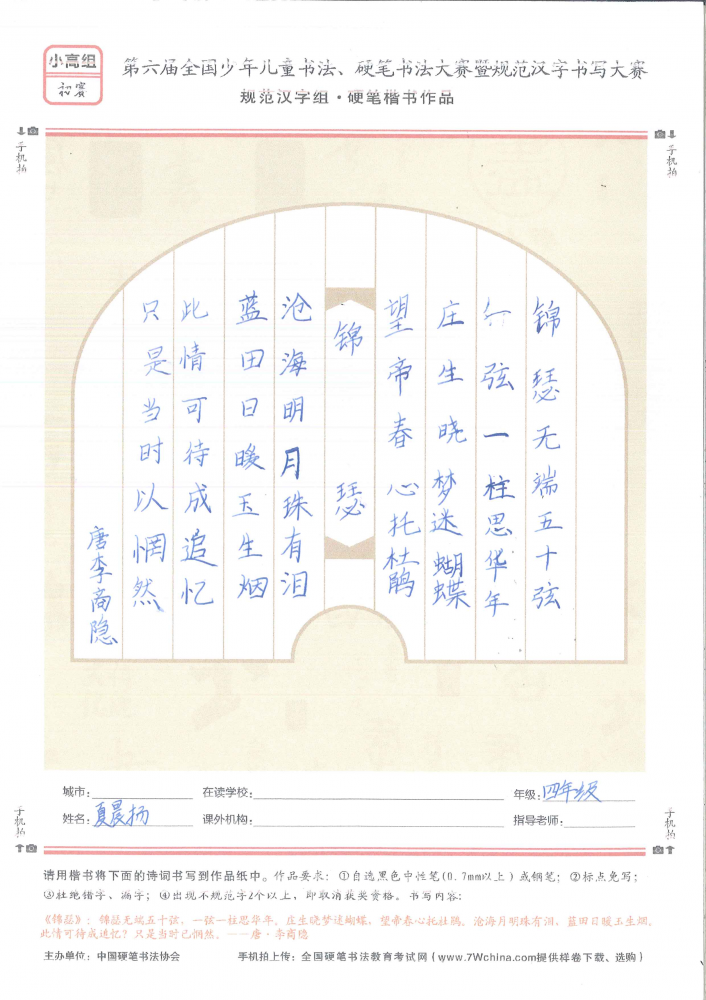 小高组
初赛
第六届全国少年儿童书法、硬笔书法大赛暨规范汉字书写大赛
规范汉字组·硬笔楷书作品
手机拍
手机拍
锦瑟无端五十弦
一弦一柱思华年
庄生晓梦迷蝴蝶
望帝春心托杜鹃
锦瑟
沧海明月珠有泪
蓝田日暖玉生烟
此情可待成追忆
只是当时以惘然
唐李商隐
城市: 在读学校: 年级:四年级
姓名:夏晨扬 课外机构: 指导老师:
手机拍
手机拍
请用楷书将下面的诗词书写到作品纸中。作品要求:①自选黑色中性笔(0.7mm以上)或钢笔;②标点免写;
③杜绝错字、漏字;④出现不规范字2个以上,即取消获奖资格。书写内容:
《锦瑟》:锦瑟无端五十弦,一弦一柱思华年。庄生晓梦迷蝴蝶,望帝春心托杜鹃。沧海月明珠有泪,蓝田日暖玉生烟。
此情可待成追忆?只是当时已惘然。——唐·李商隐
主办单位:中国硬笔书法协会 手机拍上传:全国硬笔书法教育考试网(www.7Wchina.com提供样卷下载、选购)